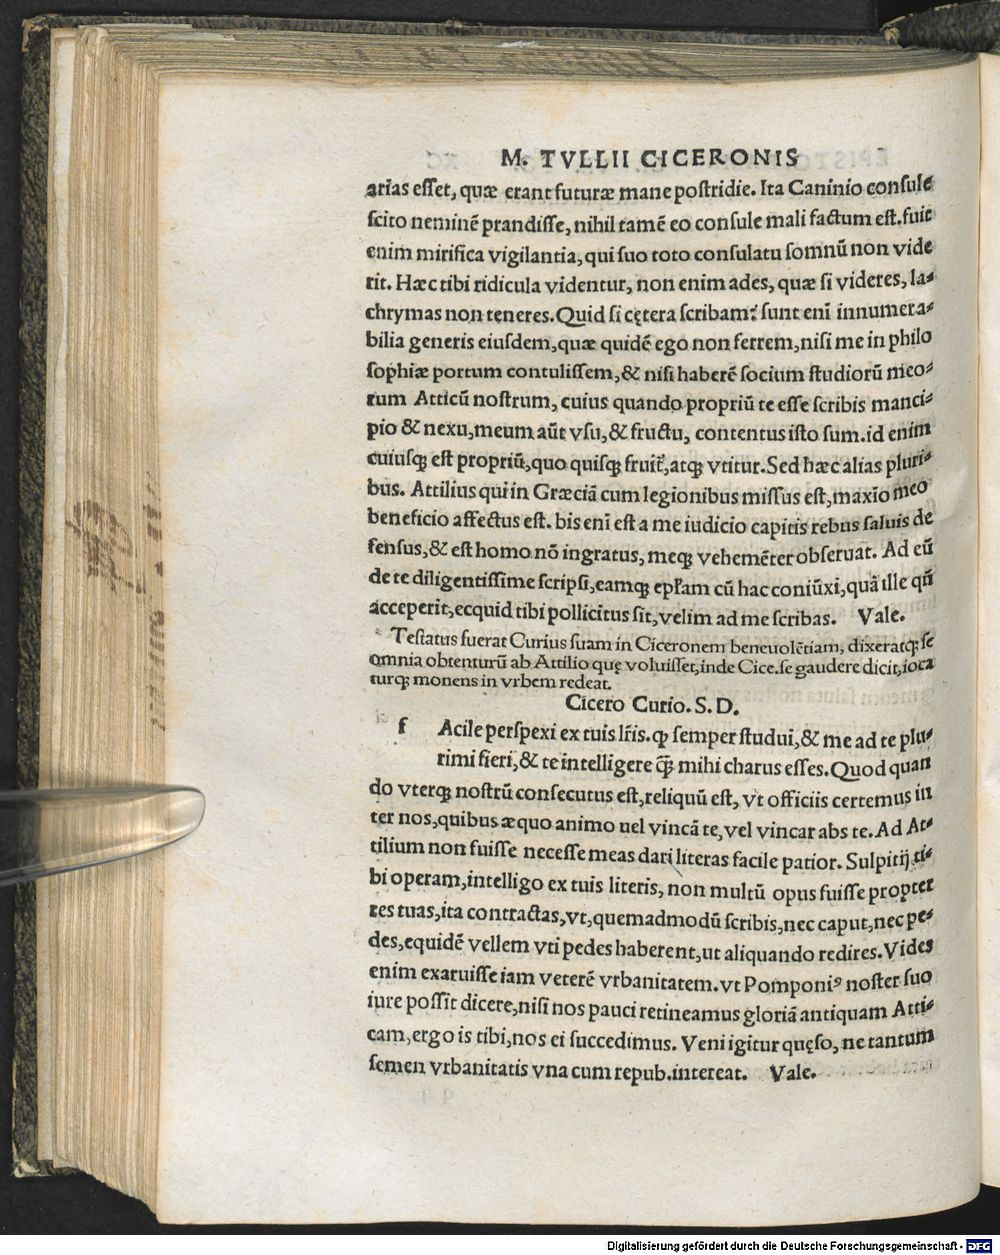 M. TVLLII CICERONIS
arias esset, quæ erant futuræ mane postridie. Ita Caninio consule
scito neminē prandisse, nihil tamē eo consule mali factum est. fuit
enim mirifica vigilantia, qui suo toto consulatu somnū non vide
rit. Hæc tibi ridicula videntur, non enim ades, quæ si videres, la-
chrymas non teneres. Quid si cętera scribam? sunt eni innumera-
bilia generis eiusdem, quæ quidē ego non ferrem, nisi me in philo
sophiæ portum contulissem, & nisi haberē socium studiorū meo-
rum Atticū nostrum, cuius quando propriū te esse scribis manci-
pio & nexu, meum aūt vsu, & fructu, contentus isto sum. id enim
cuiusq; est propriū, quo quisq; fruit̃, atq; vtitur. Sed hæc alias pluri-
bus. Attilius qui in Græciā cum legionibus missus est, maxīo meo
beneficio affectus est. bis enī est a me iudicio capitis rebus saluis de
fensus, & est homo nō ingratus, meq; vehemēter obseruat. Ad eū
de te diligentissime scripsi, eamq; ep̄lam cū hac coniūxi, quā ille qū
acceperit, ecquid tibi pollicitus sit, velim ad me scribas. Vale.
Testatus fuerat Curius suam in Ciceronem beneuolētiam, dixeratq; se
omnia obtenturū ab Attilio quę voluisset, inde Cice. se gaudere dicit, ioca
turq; monens in vrbem redeat.
Cicero Curio. S. D.
f Acile perspexi ex tuis lr̄is. ꝙ semper studui, & me ad te plu-
rimi fieri, & te intelligere q̄ꝫ mihi charus esses. Quod quan
do vterq; nostrū consecutus est, reliquū est, vt officiis certemus in
ter nos, quibus æquo animo uel vincā te, vel vincar abs te. Ad At-
tilium non fuisse necesse meas dari literas facile patior. Sulpitij ti-
bi operam, intelligo ex tuis literis, non multū opus fuisse propter
res tuas, ita contractas, vt, quemadmodū scribis, nec caput, nec pe-
des, equidē vellem vti pedes haberent, ut aliquando redires. Vides
enim exaruisse iam veterē vrbanitatem. vt Pomponiꝰ noster suo
iure possit dicere, nisi nos pauci retineamus gloriā antiquam Atti-
cam, ergo is tibi, nos ei succedimus. Veni igitur quęso, ne tantum
semen vrbanitatis vna cum repub. intereat. Vale.
Digitalisierung gefördert durch die Deutsche Forschungsgemeinschaft - DFG